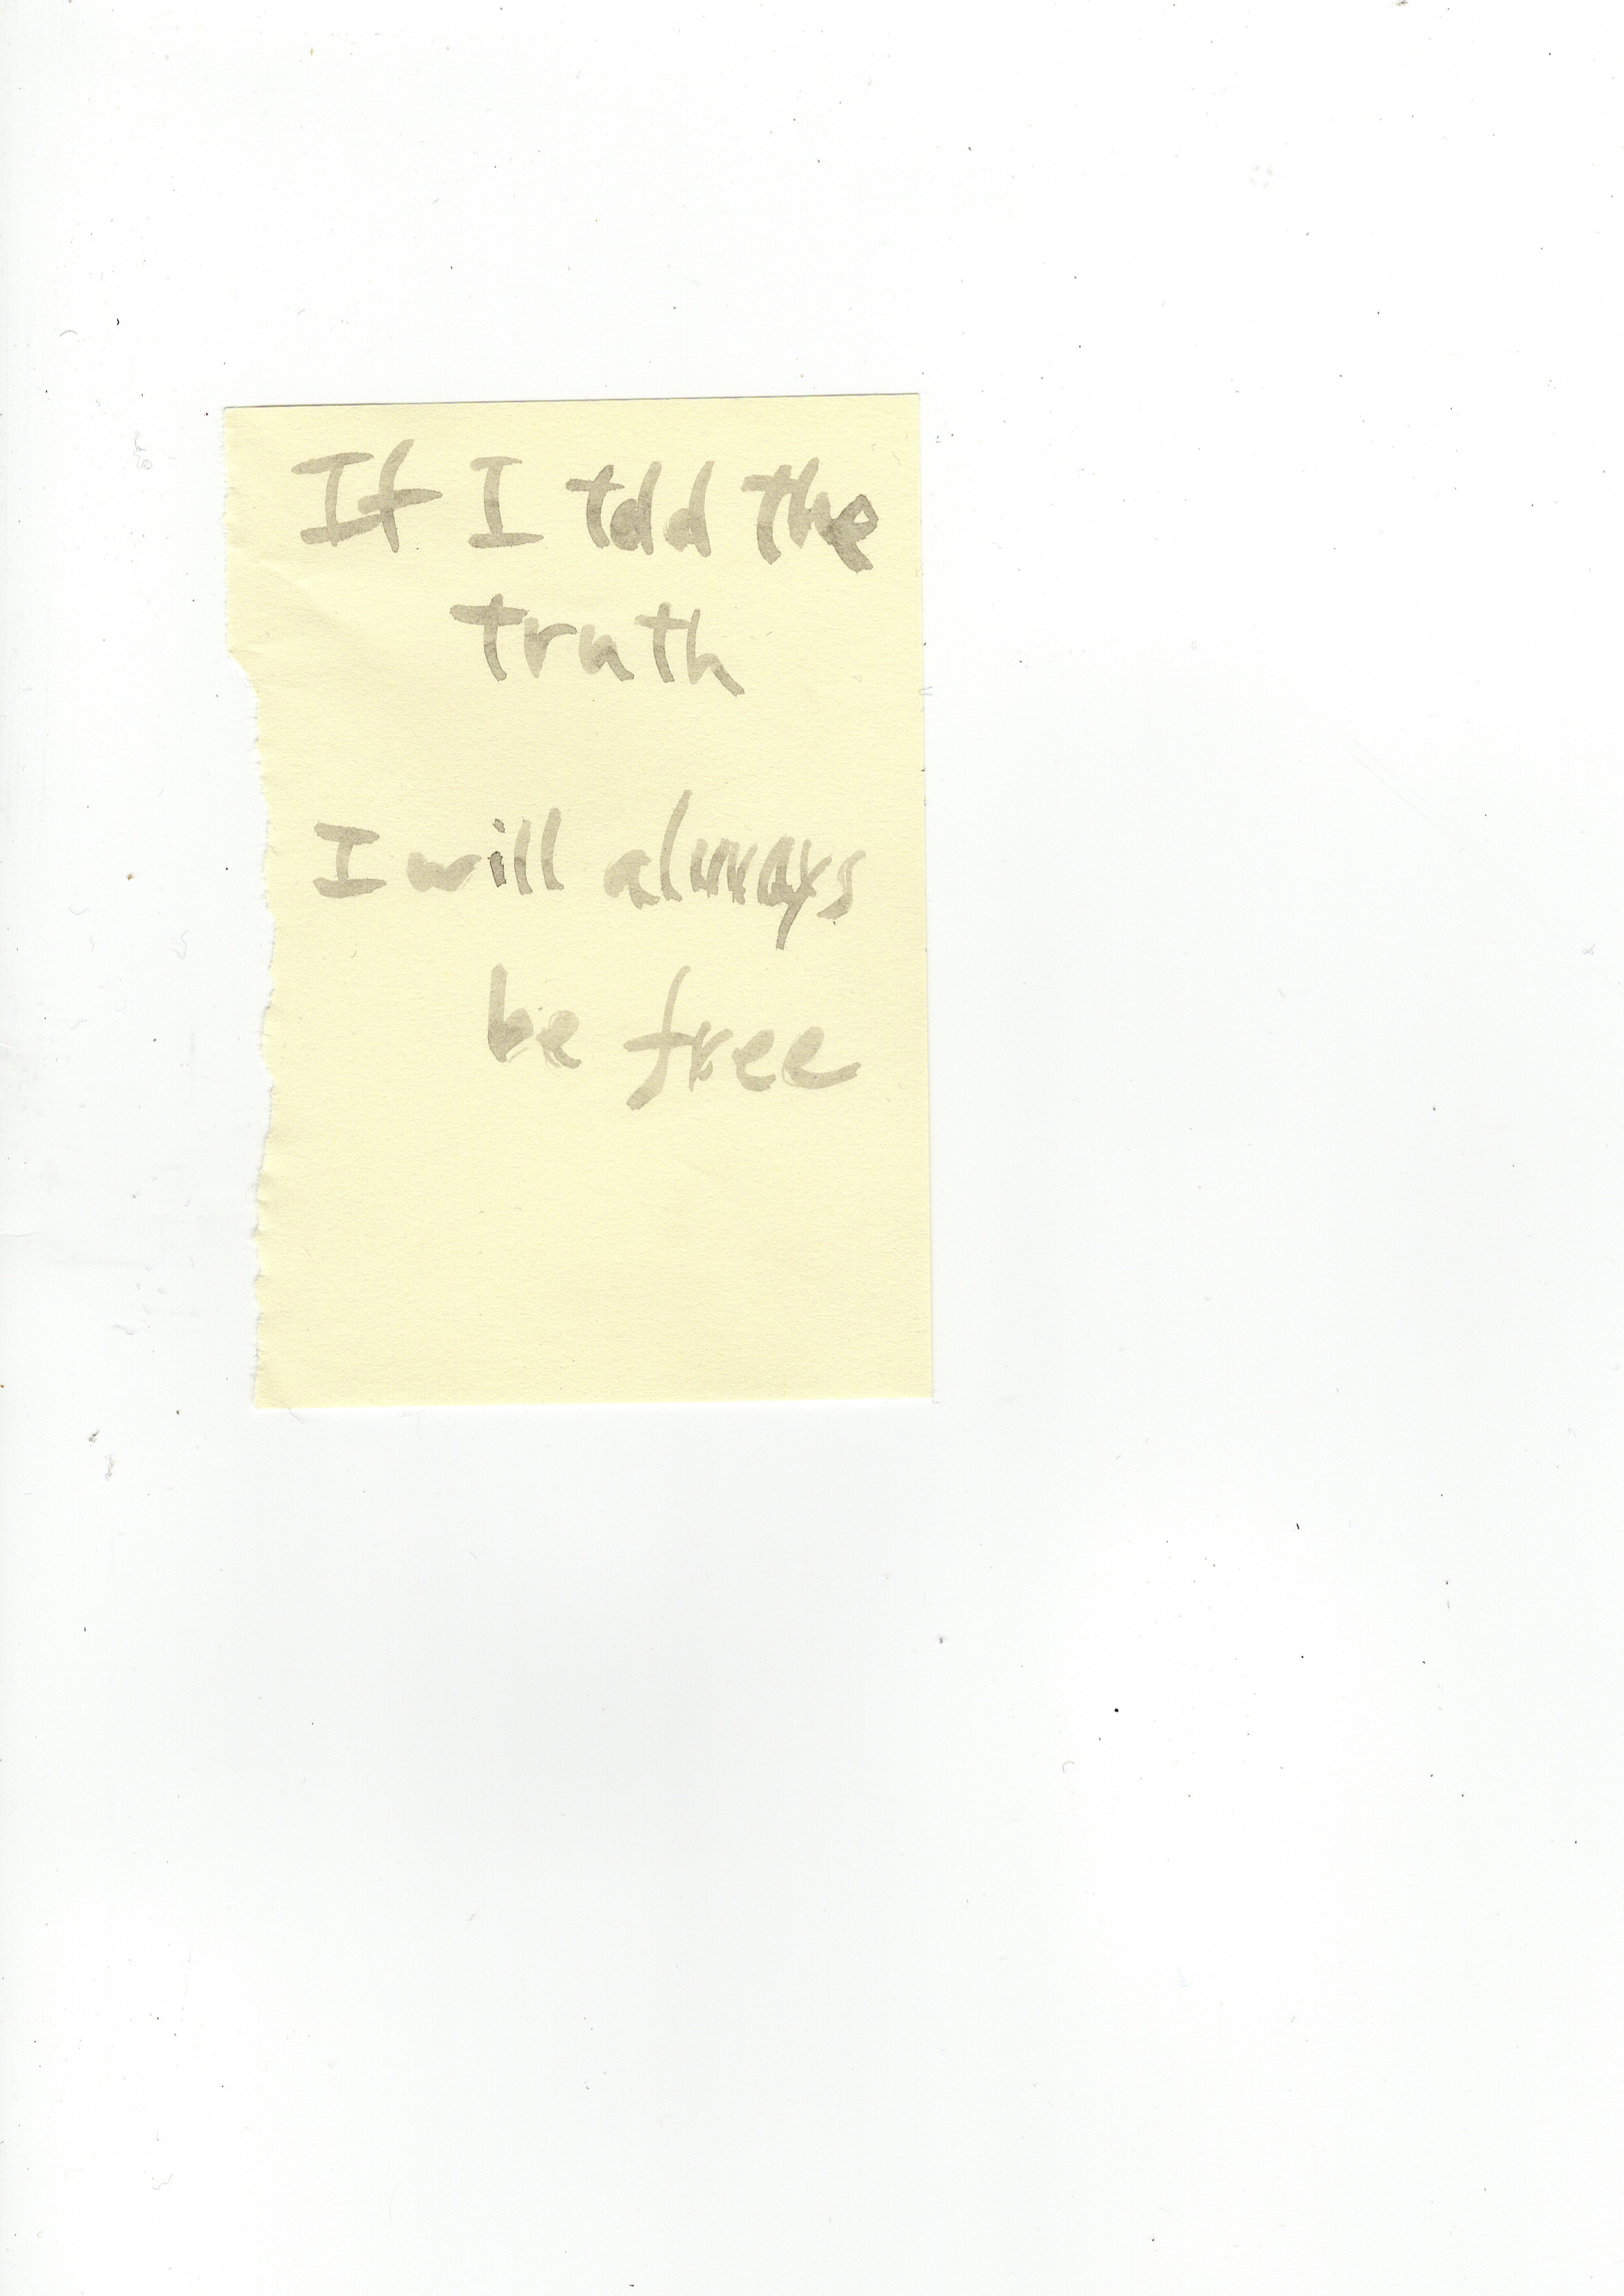 If I told the
truth
I will always
be free